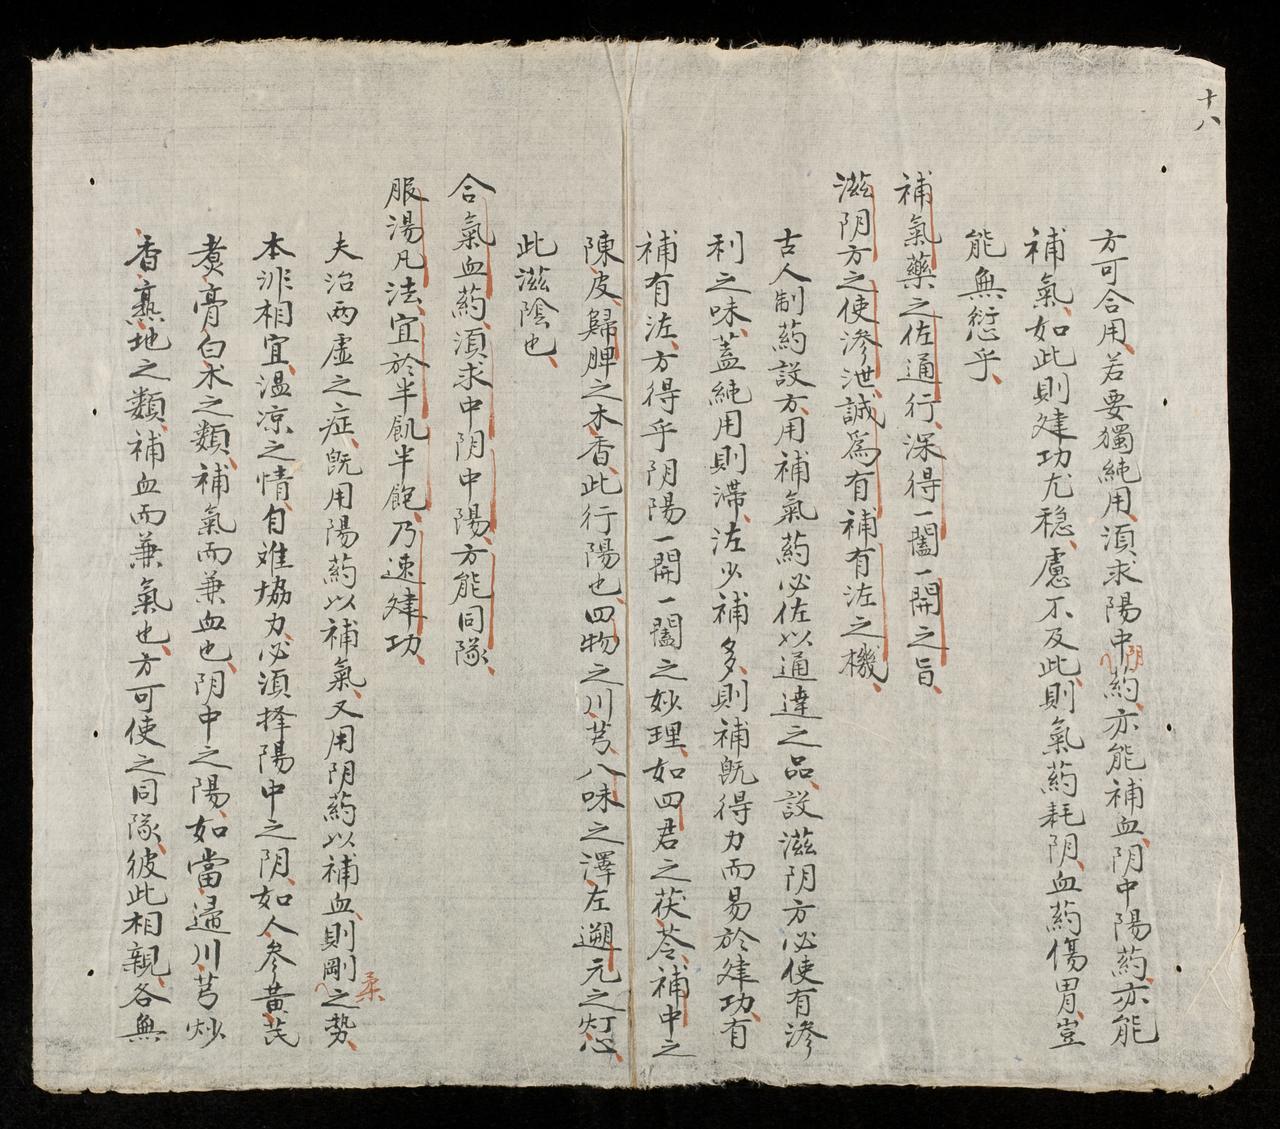 十八
方可合用、若要獨純用、須求陽中阴药、亦能補血、阴中陽药、亦能
補氣、如此則建功尤穩、慮不及此、則氣药耗阴、血药傷胃、豈
能無愆乎、
補氣藥之佐通行、深得一闔一開之旨、
滋阴方之使渗泄、誠為有補有泄之機、
古人制药設方、用補氣药必佐以通達之品、設滋阴方必使有渗
利之味、蓋純用則滯、泄少補多、則補既得力而易於建功、有
補有泄、方得乎阴陽一開一闔之妙理、如四君之茯苓、補中之
陳皮、歸脾之木香、此行陽也、四物之川芎、八味之澤左、遡元之灯心、
此滋陰也、
合氣血药、須求中阴中陽、方能同隊、
服湯凡法、宜於半飢半飽、乃速建功、
夫治兩虛之症、既用陽药以補氣、又用阴药以補血、則剛柔之勢、
本非相宜、温凉之情、自难協力、必須擇陽中之阴、如人參黃芪
煮膏白朮之類、補氣而兼血也、阴中之陽、如當歸川芎炒
香熟地之類、補血而兼氣也、方可使之同隊、彼此相親、各無